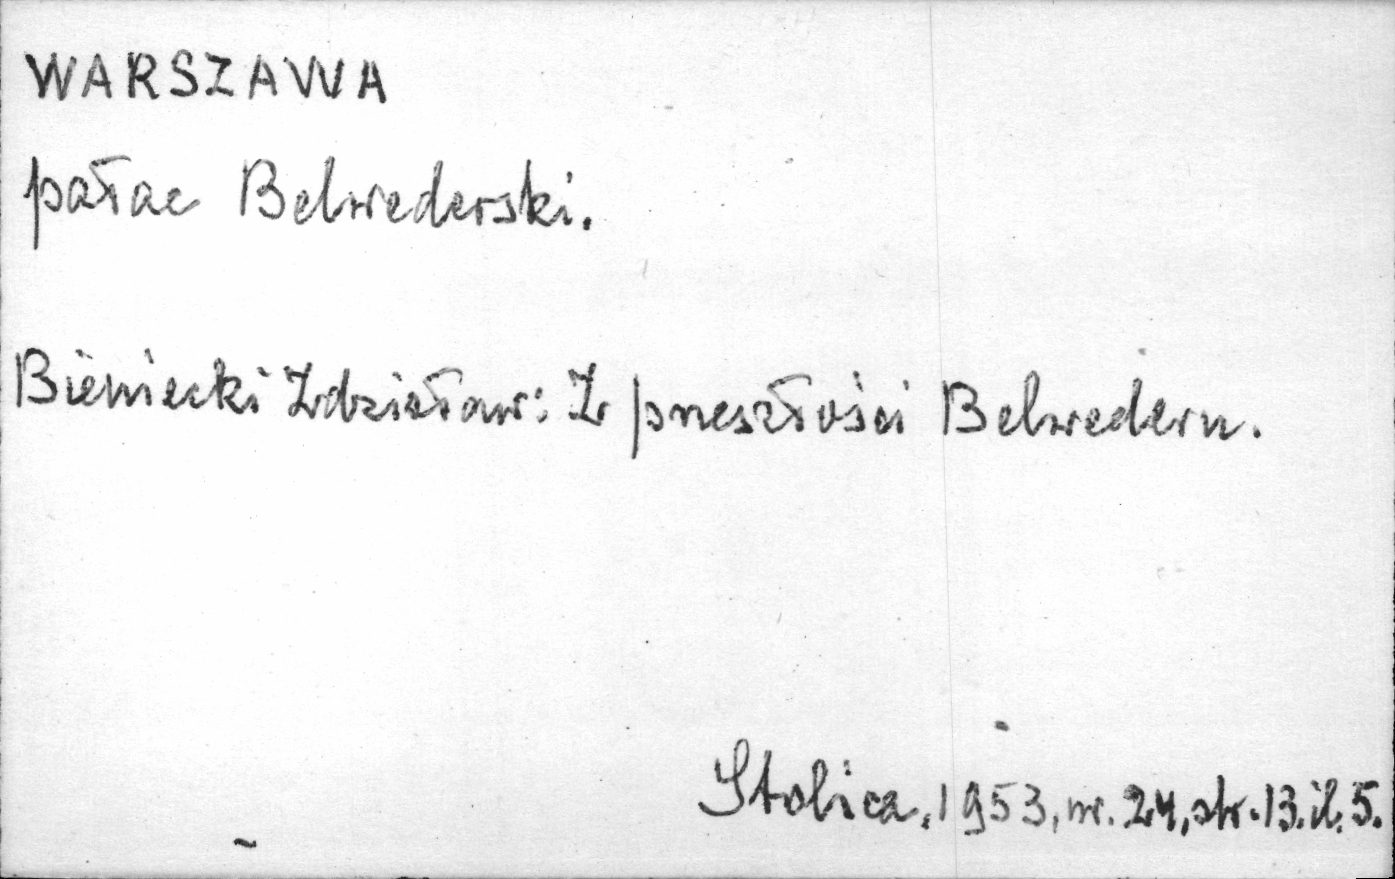 WARSZAWA
pałac Belwederski.
Bieniecki Zdzisław: Z przeszłości Belwederu.
Stolica, 1953, nr. 24, str. 13. il. 5.